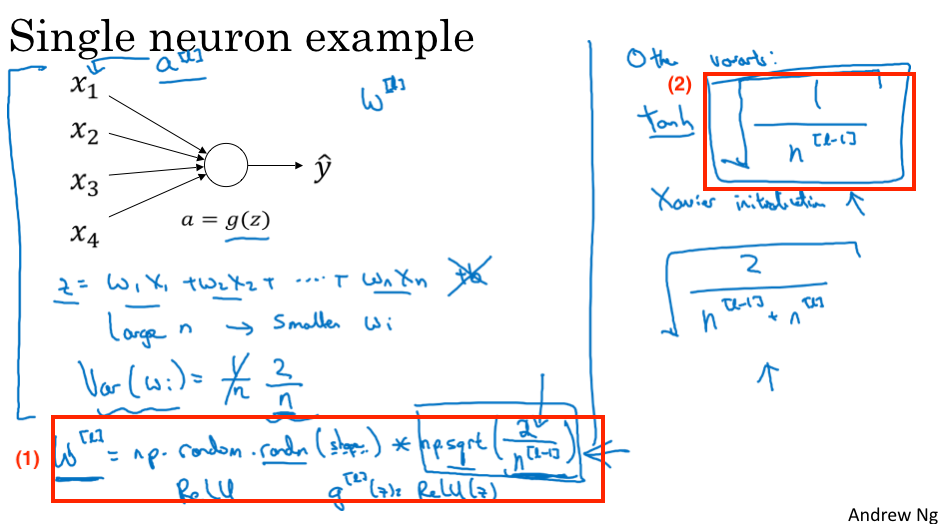 Single neuron example
x₁
a^[l]
x₂
x₃
x₄
ŷ
a = g(z)
W^[l]
z = w₁x₁ + w₂x₂ + ... + wₙxₙ +b
Large n → Smaller wᵢ
Var(wᵢ) = 1/n 2/n
(1)
W^[l] = np.random.randn(shape) * np.sqrt(2/n^[l-1])
ReLU g^[l](z) = ReLU(z)
Other variants:
(2)
tanh √(1/n^[l-1])
Xavier initialization ↑
√(2/(n^[l-1] + n^[l]))
↑
Andrew Ng